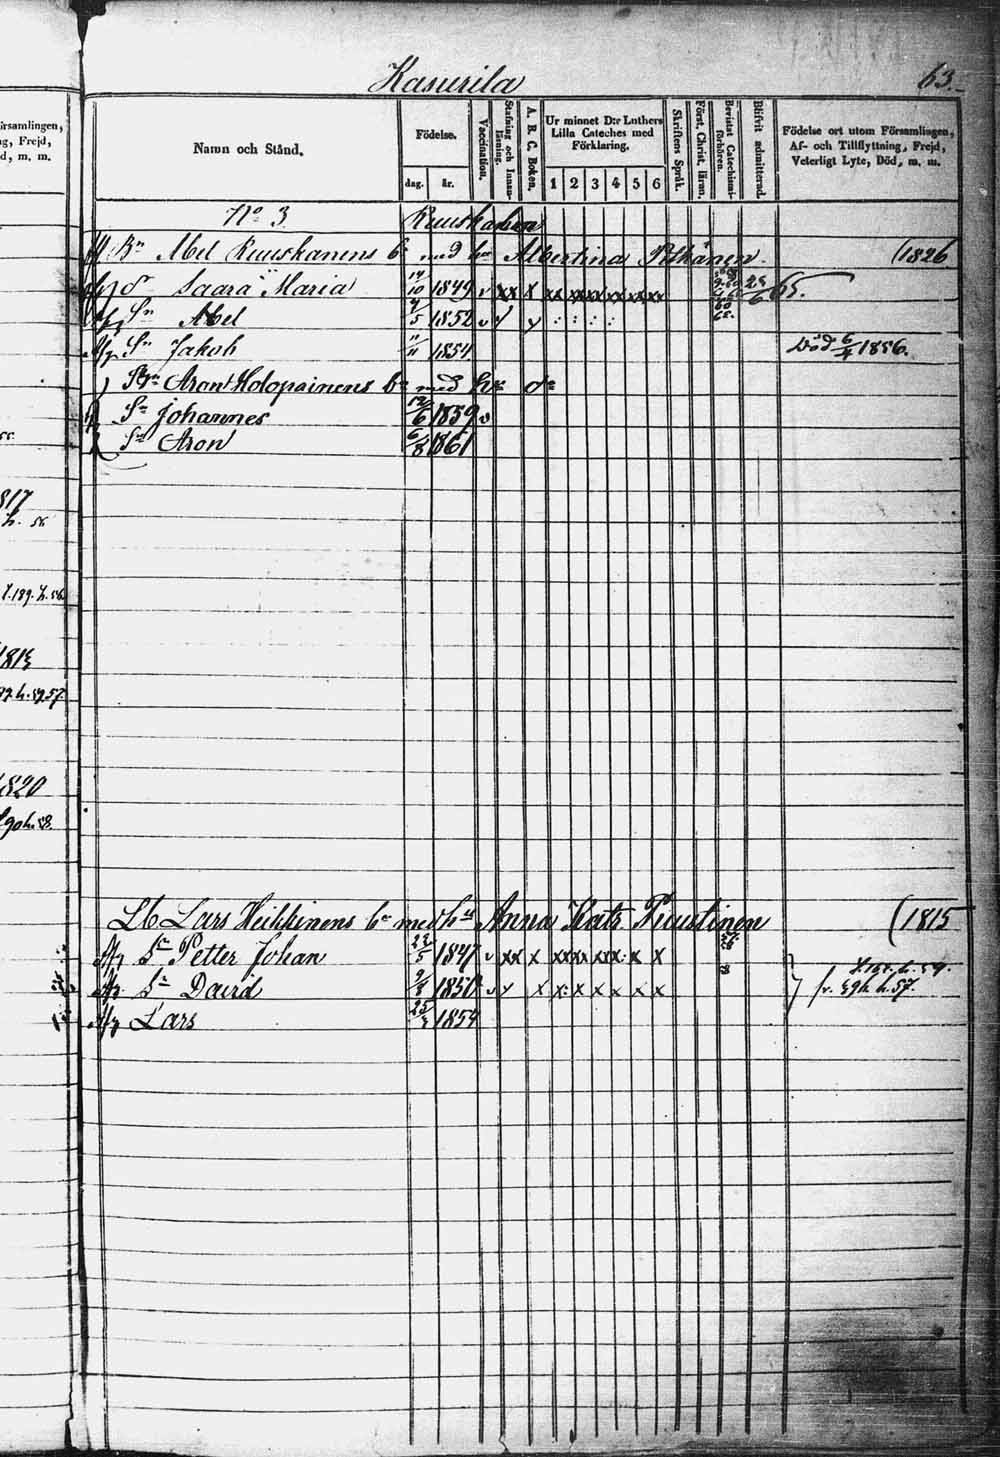 Kasurila 63.
Namn och Stånd.
Födelse.
dag. år.
Vaccination.
Stafning och Innanläsning.
A. B. C. Boken.
Ur minnet D:r Luthers Lilla Cateches med Förklaring.
1 2 3 4 5 6
Skriftens Språk.
Först. Christ. läran.
Bevistat Catechismiförhören.
Blifvit admitterad.
Födelse ort utom Församlingen, Af- och Tillflyttning, Frejd, Veterligt Lyte, Död, m. m.
No 3. Ruuskanen
Bn Abel Ruuskanens bn med hu Albertina Pitkänen. (1826
dr Saara Maria 14/10 1849 v xx x xx xx xx xx xx xx
Sn Abel 4/5 1852 v y y : : : :
Sn Jakob 11/11 1854 Död 6/4 1856.
Aron Holopainens bn med hu do
Sn Johannes 12/6 1859 v
Sn Aron 6/8 1861
Lb Lars Heikkinens bn med hu Anna Katr Ruustinen (1815
Sn Petter Johan 22/5 1847 v xx x x xxx xxx x x
Sn David 9/8 1850 v y x x: x x x x x
Lars 25/3 1854
örsamlingen,
g, Frejd,
d, m. m.
817
1813
1820